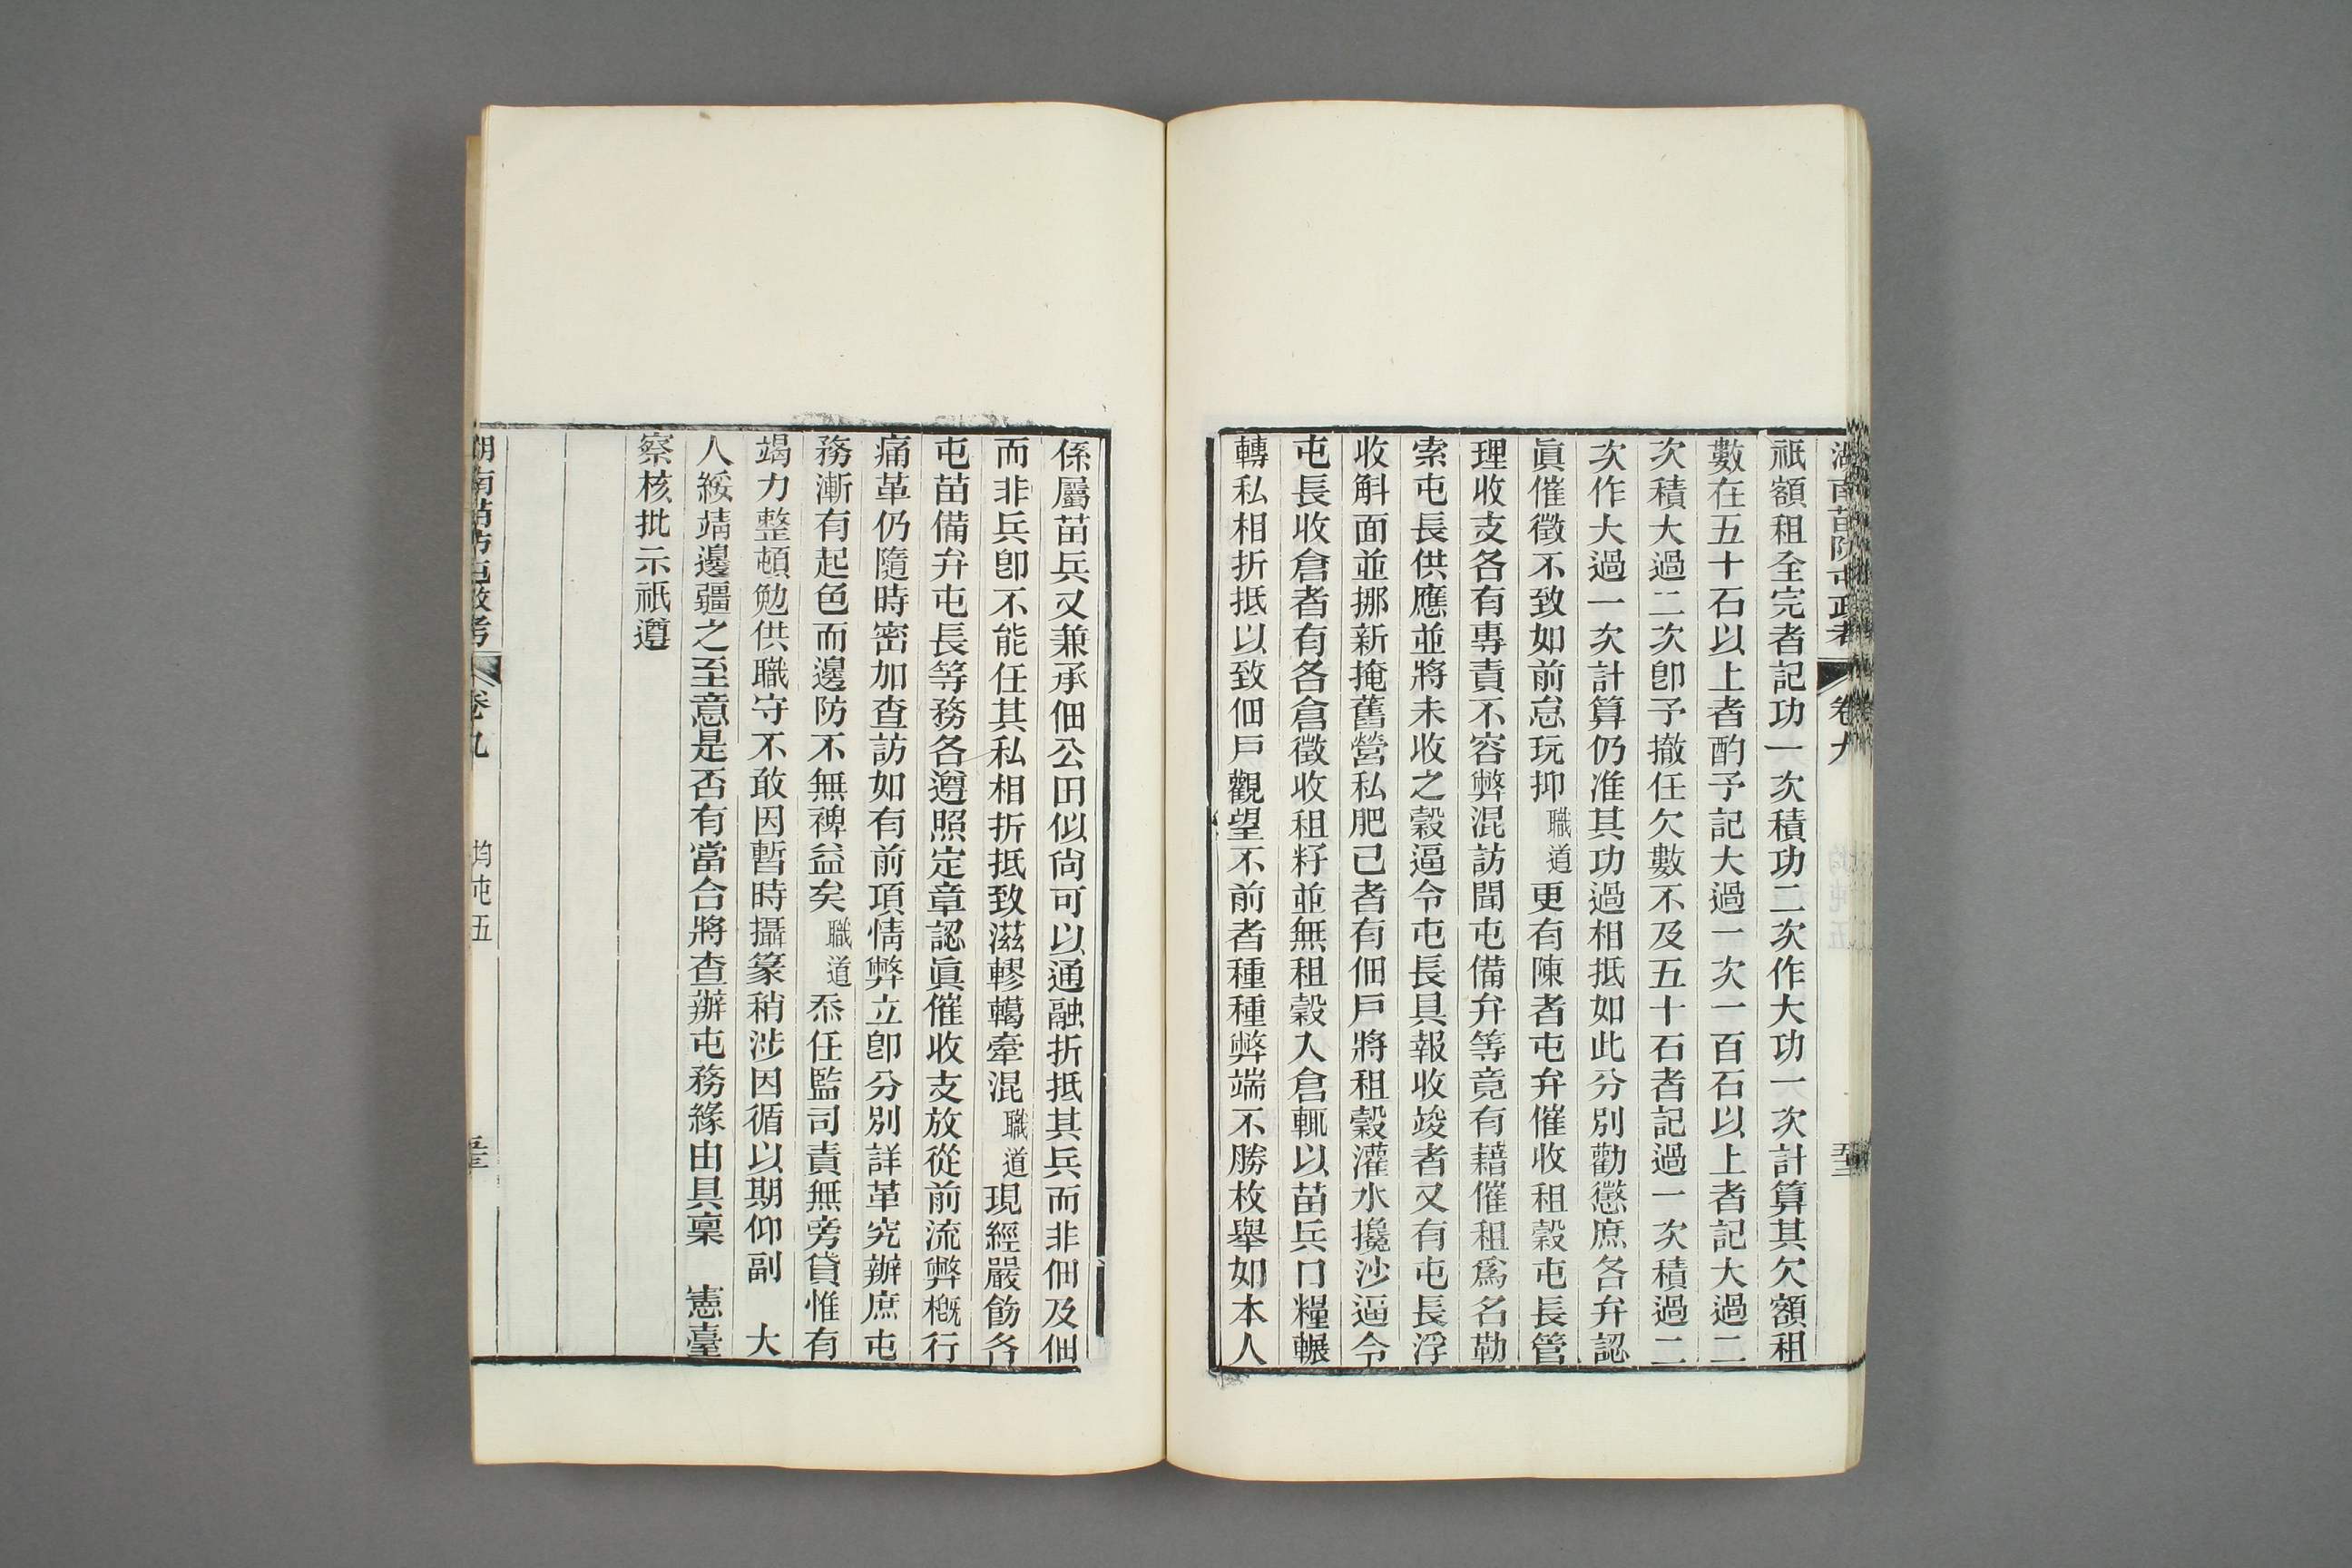 湖南苗防屯政考 卷九
祇額租全完者記功一次積功二次作大功一次計算其欠額租
數在五十石以上者酌予記大過一次一百石以上者記大過二
次積大過二次卽予撤任欠數不及五十石者記過一次積過二
次作大過一次計算仍准其功過相抵如此分別勸懲庶各弁認
眞催徵不致如前怠玩抑職道更有陳者屯弁催收租穀屯長管
理收支各有專責不容弊混訪聞屯備弁等竟有藉催租爲名勒
索屯長供應並將未收之穀逼令屯長具報收竣者又有屯長浮
收斛面並挪新掩舊營私肥己者有佃戶將租穀灌水攙沙逼令
屯長收倉者有各倉徵收租籽並無租穀入倉輒以苗兵口糧輾
轉私相折抵以致佃戶觀望不前者種種弊端不勝枚舉如本人
係屬苗兵又兼承佃公田似尙可以通融折抵其兵而非佃及佃
而非兵卽不能任其私相折抵致滋轇轕牽混職道現經嚴飭各
屯苗備弁屯長等務各遵照定章認眞催收支放從前流弊槪行
痛革仍隨時密加查訪如有前項情弊立卽分別詳革究辦庶屯
務漸有起色而邊防不無裨益矣職道忝任監司責無旁貸惟有
竭力整頓勉供職守不敢因暫時攝篆稍涉因循以期仰副 大
人綏靖邊疆之至意是否有當合將查辦屯務緣由具稟 憲臺
察核批示祇遵
湖南苗防屯政考 卷九 均屯五